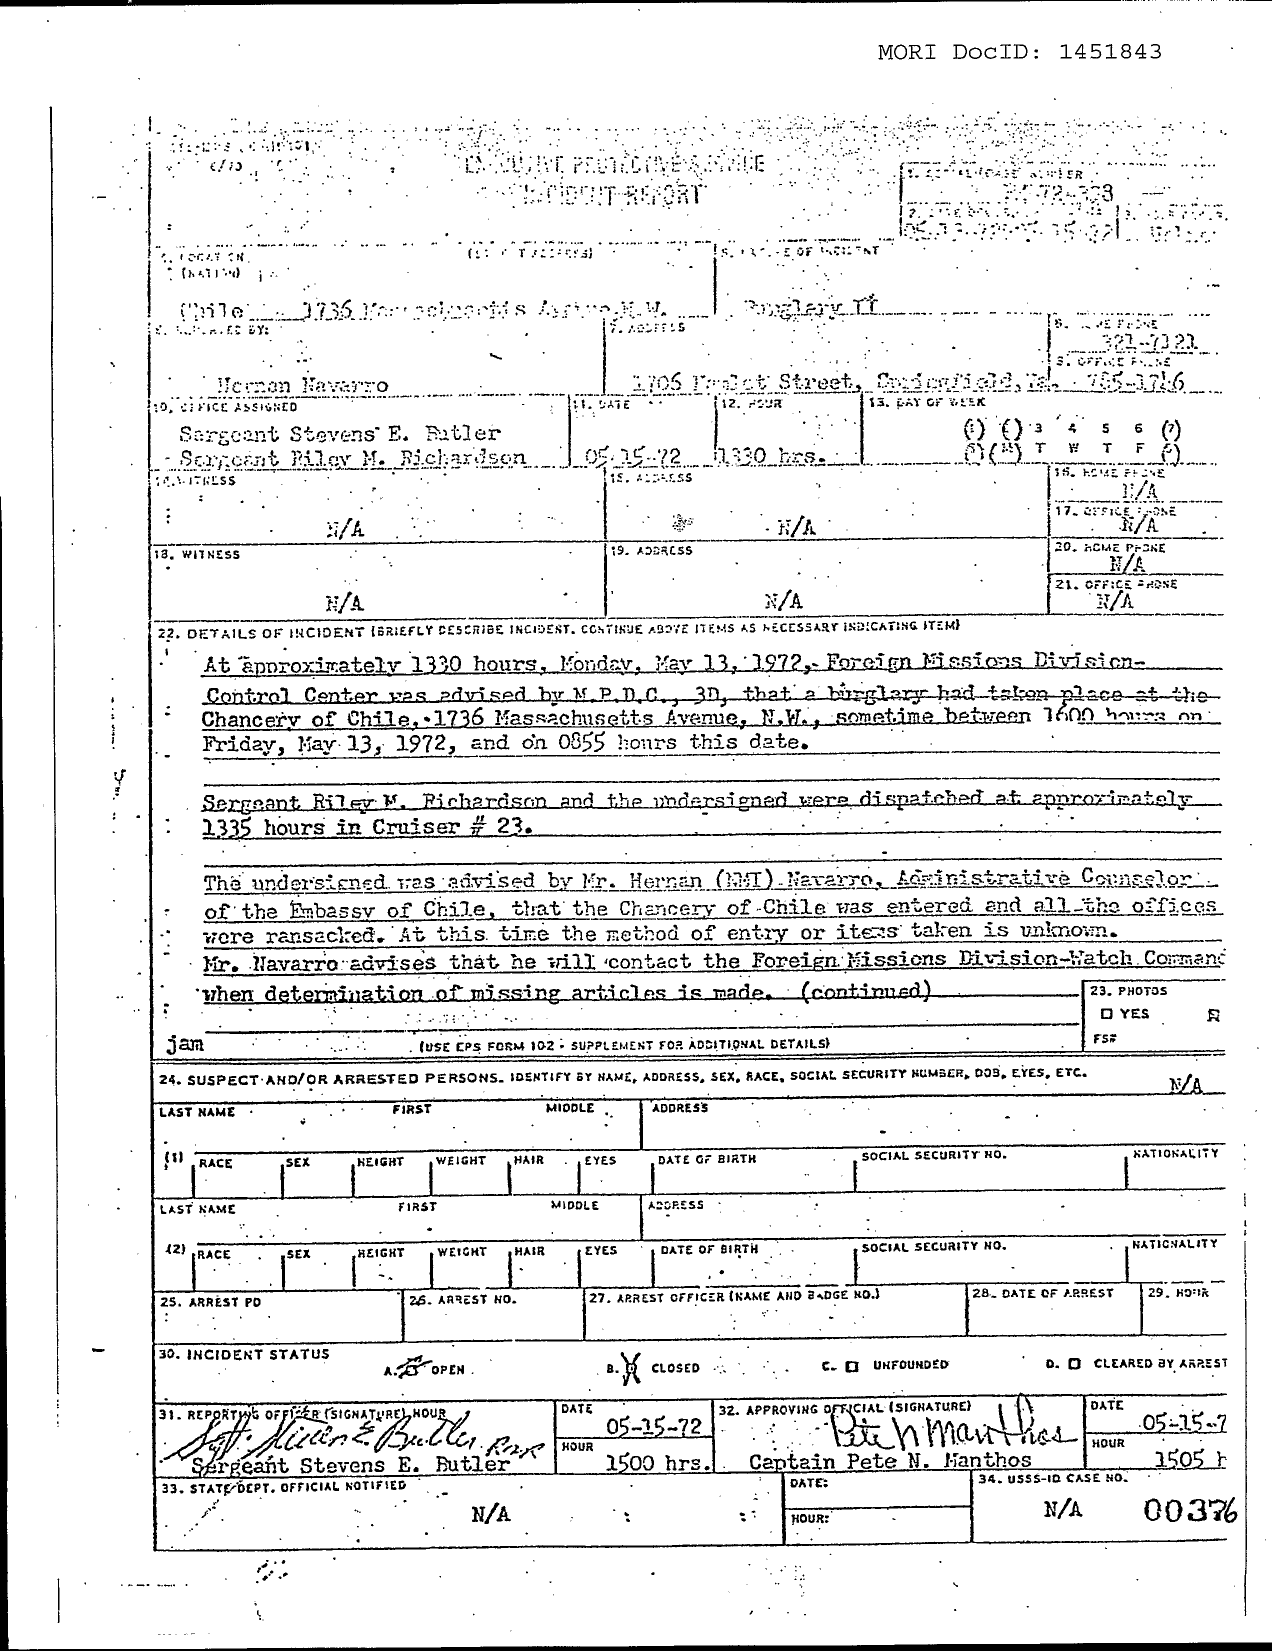 MORI DocID: 1451843
EXECUTIVE PROTECTIVE SERVICE
INCIDENT REPORT
72-338
(NATION)
5. NATURE OF INCIDENT
Chile 1736 Massachusetts Avenue, N.W. Burglary II
7. ADDRESS
8. HOME PHONE
321-7121
9. OFFICE PHONE
Hernan Navarro 1706 Street, 785-1746
10. OFFICE ASSIGNED 11. DATE 12. HOUR 13. DAY OF WEEK
Sergeant Stevens E. Butler
Sergeant Riley M. Richardson 05-15-72 1330 hrs.
( ) ( ) 3 4 5 6 (7)
T W T F
14. WITNESS 15. ADDRESS 16. HOME PHONE
N/A
17. OFFICE PHONE
N/A N/A N/A
18. WITNESS 19. ADDRESS 20. HOME PHONE
N/A
21. OFFICE PHONE
N/A N/A N/A
22. DETAILS OF INCIDENT (BRIEFLY DESCRIBE INCIDENT. CONTINUE ABOVE ITEMS AS NECESSARY INDICATING ITEM)
At approximately 1330 hours, Monday, May 13, 1972, Foreign Missions Division-
Control Center was advised by M.P.D.C., 3D, that a burglary had taken place at the
Chancery of Chile, 1736 Massachusetts Avenue, N.W., sometime between 1600 hours on
Friday, May 13, 1972, and on 0855 hours this date.
Sergeant Riley M. Richardson and the undersigned were dispatched at approximately
1335 hours in Cruiser # 23.
The undersigned was advised by Mr. Hernan (NMI) Navarro, Administrative Counselor
of the Embassy of Chile, that the Chancery of Chile was entered and all the offices
were ransacked. At this time the method of entry or items taken is unknown.
Mr. Navarro advises that he will contact the Foreign Missions Division-Watch Command
when determination of missing articles is made. (continued)
23. PHOTOS
YES
FS#
jam (USE EPS FORM 102 - SUPPLEMENT FOR ADDITIONAL DETAILS)
24. SUSPECT AND/OR ARRESTED PERSONS. IDENTIFY BY NAME, ADDRESS, SEX, RACE, SOCIAL SECURITY NUMBER, DOB, EYES, ETC. N/A
LAST NAME FIRST MIDDLE ADDRESS
(1) RACE SEX HEIGHT WEIGHT HAIR EYES DATE OF BIRTH SOCIAL SECURITY NO. NATIONALITY
LAST NAME FIRST MIDDLE ADDRESS
(2) RACE SEX HEIGHT WEIGHT HAIR EYES DATE OF BIRTH SOCIAL SECURITY NO. NATIONALITY
25. ARREST PD 26. ARREST NO. 27. ARREST OFFICER (NAME AND BADGE NO.) 28. DATE OF ARREST 29. HOUR
30. INCIDENT STATUS
A. OPEN B. CLOSED C. UNFOUNDED D. CLEARED BY ARREST
31. REPORTING OFFICER (SIGNATURE) HOUR DATE 32. APPROVING OFFICIAL (SIGNATURE) DATE
Sgt. Steven E. Butler 05-15-72 Pete N Manthos 05-15-7
HOUR HOUR
Sergeant Stevens E. Butler 1500 hrs. Captain Pete N. Manthos 1505 h
33. STATE DEPT. OFFICIAL NOTIFIED DATE: 34. USSS-ID CASE NO.
N/A HOUR: N/A 00376